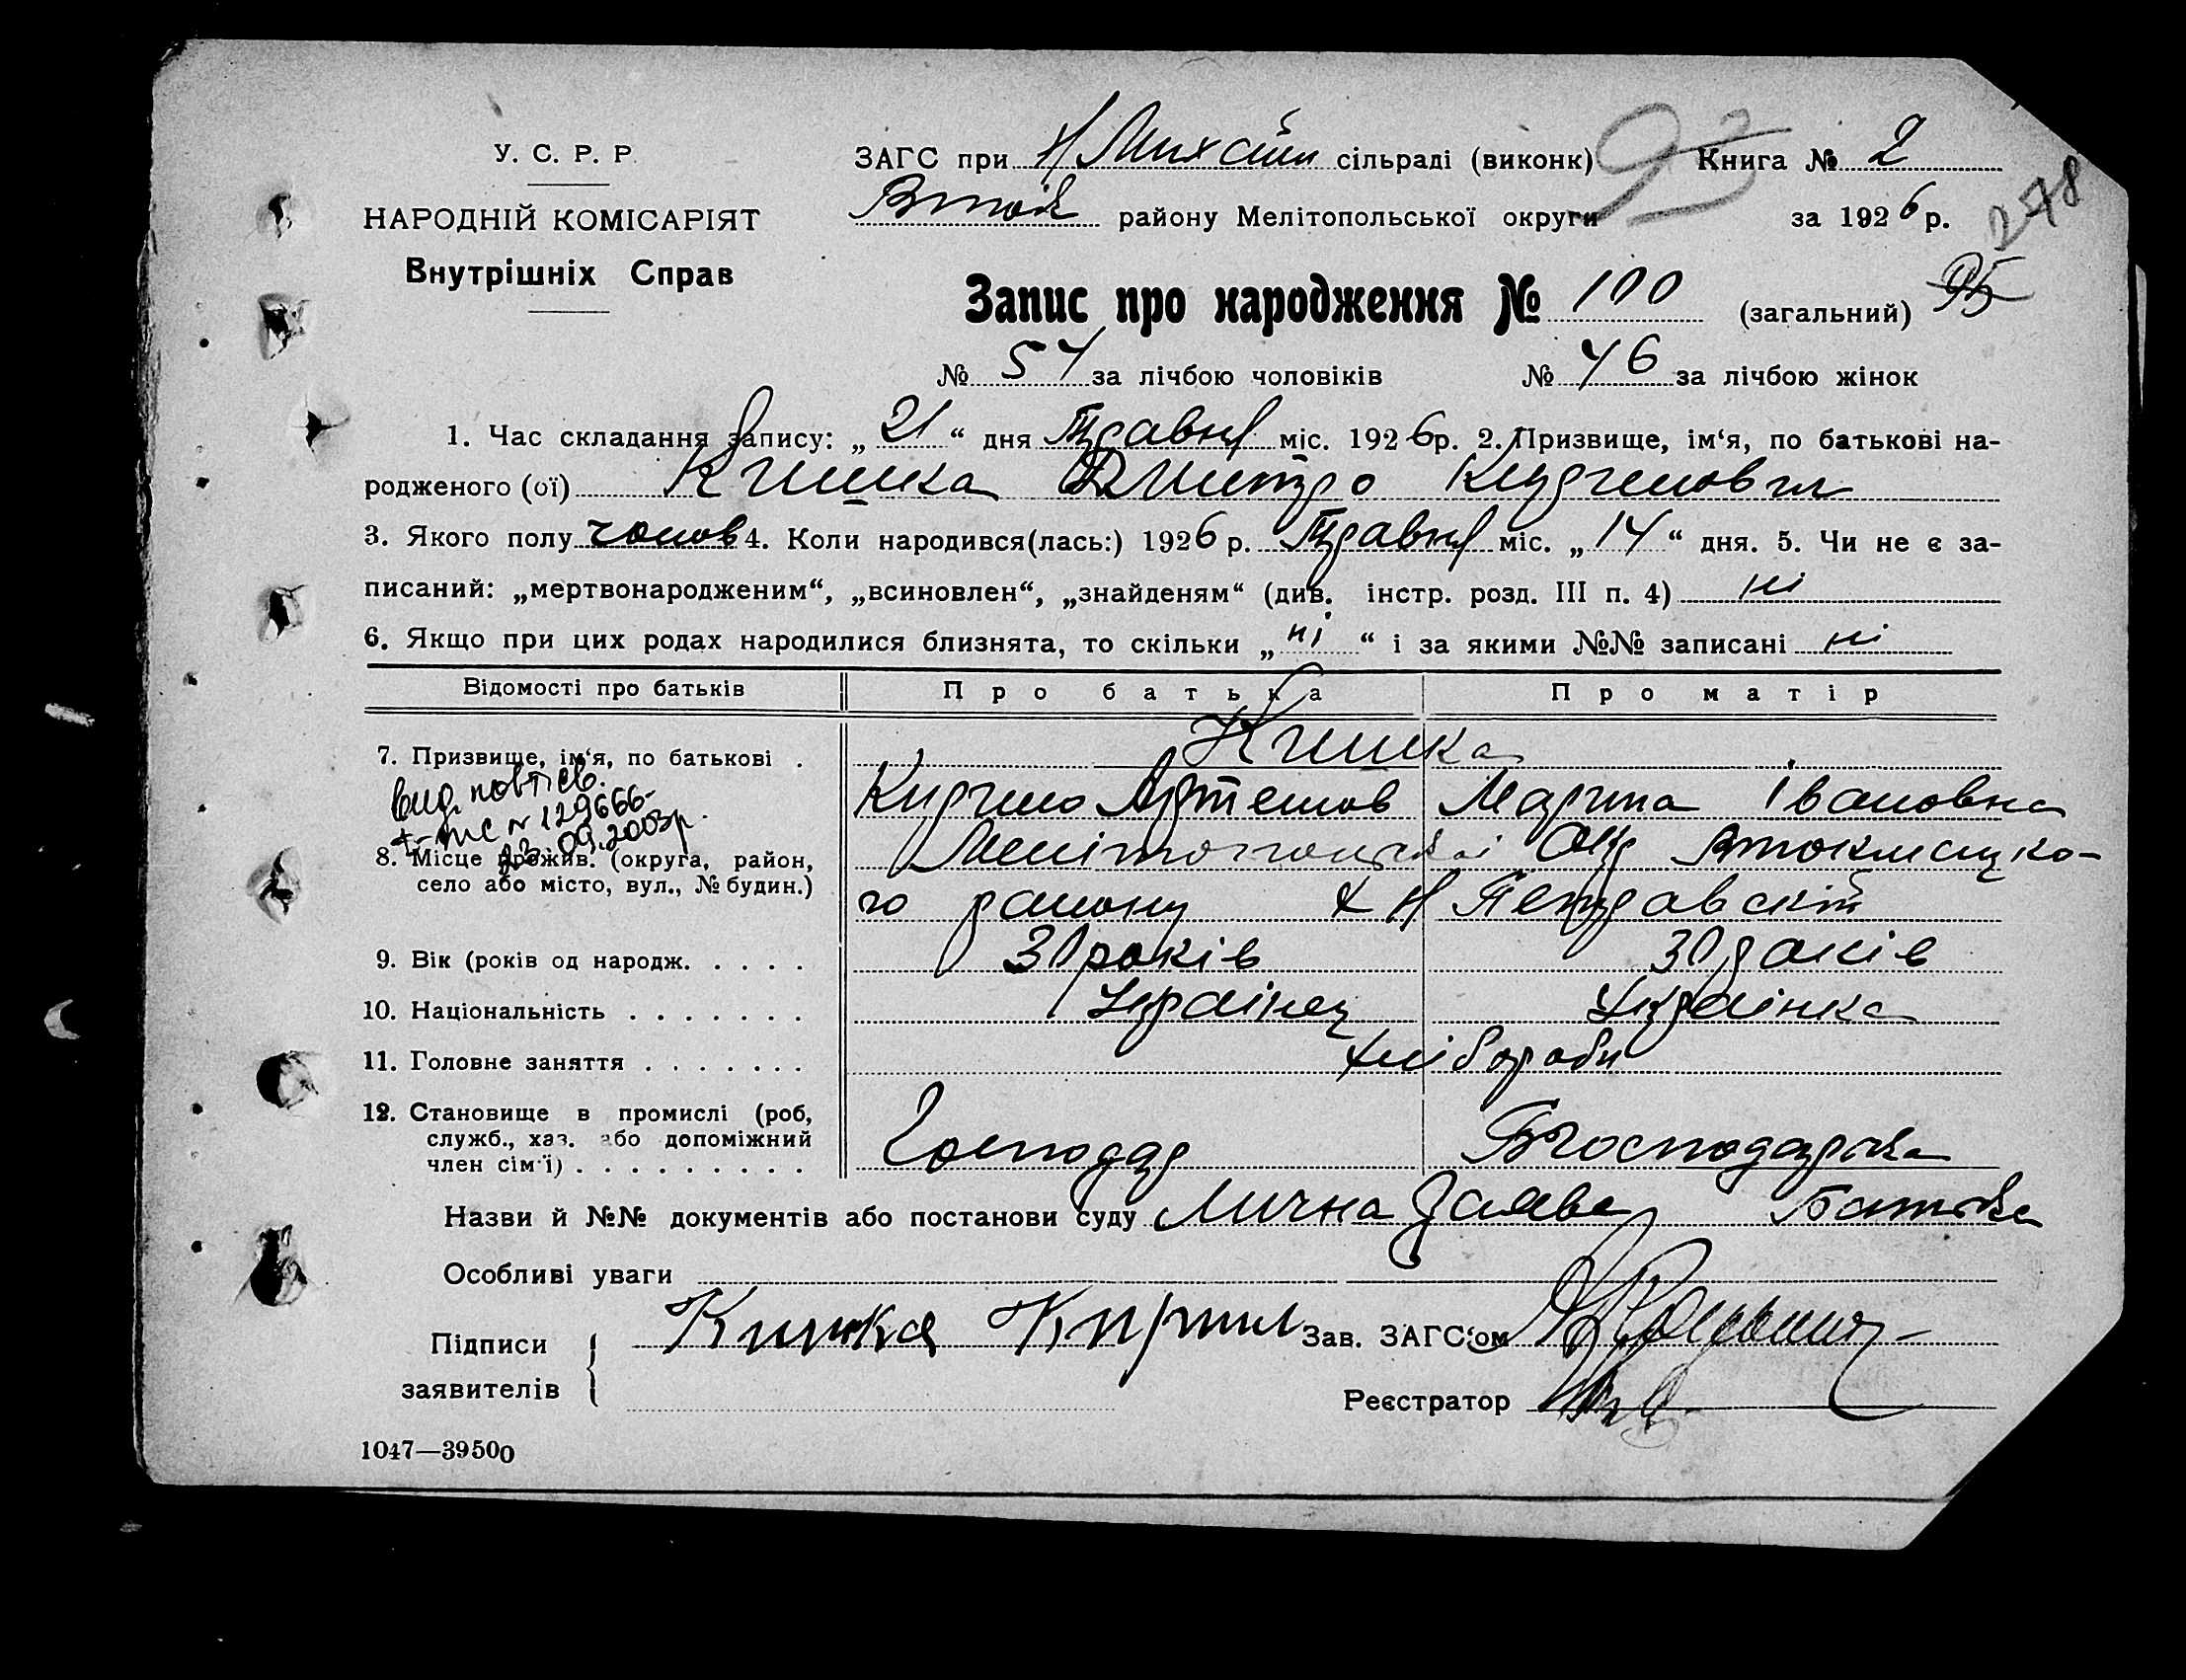 У. С. Р. Р.
НАРОДНІЙ КОМІСАРІЯТ
Внутрішніх Справ
ЗАГС при Н Михайли сільраді (виконк) Книга № 2
93
Вток району Мелітопольської округи за 1926 р.
278
Запис про народження № 100 (загальний) 95
№ 54 за лічбою чоловіків № 46 за лічбою жінок
1. Час складання запису: „21“ дня Травня міс. 1926р. 2. Призвище, ім‘я, по батькові на-
родженого (ої) Кишка Дмитро Кирилович
3. Якого полу чолов 4. Коли народився(лась:) 1926 р. Травня міс. „14“ дня. 5. Чи не є за-
писаний: „мертвонародженим“, „всиновлен“, „знайденям“ (див. інстр. розд. III п. 4) ні
6. Якщо при цих родах народилися близнята, то скільки „ні“ і за якими №№ записані ні
Відомості про батьків Про батька Про матір
7. Призвище, ім‘я, по батькові . Кишка
Кирило Артемов Марина Івановна
вид. повт. св.
№ 129666
23.09.2003р.
8. Місце прожив. (округа, район, Мелітопольської Окр Втокмацко-
село або місто, вул., № будин.) го району х Н Петровскій
9. Вік (років од народж. . . . . 30 років 30 років
10. Національність . . . . . . . Українец Українка
11. Головне заняття . . . . . . . хлібороби
12. Становище в промислі (роб,
служб., хаз. або допоміжний Господар Господарька
член сім‘ї) . . . . . . . . .
Назви й №№ документів або постанови суду Лична Заява Батька
Особливі уваги
Підписи Кишка Кирил Зав. ЗАГС‘ом
заявителів
Реєстратор
1047—39500